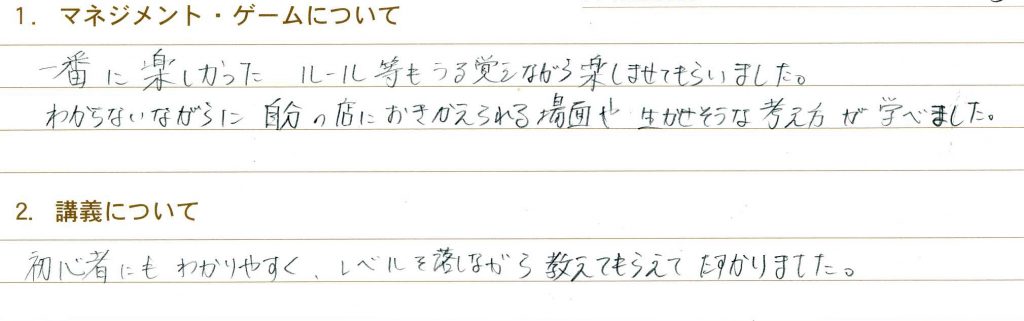 1. マネジメント・ゲームについて
一番に楽しかった ルール等もうる覚えながら楽しませてもらいました。
わからないながらに 自分の店におきかえられる場面や 生かせそうな考え方が学べました。
2. 講義について
初心者にもわかりやすく、レベルを落しながら教えてもらえてたすかりました。